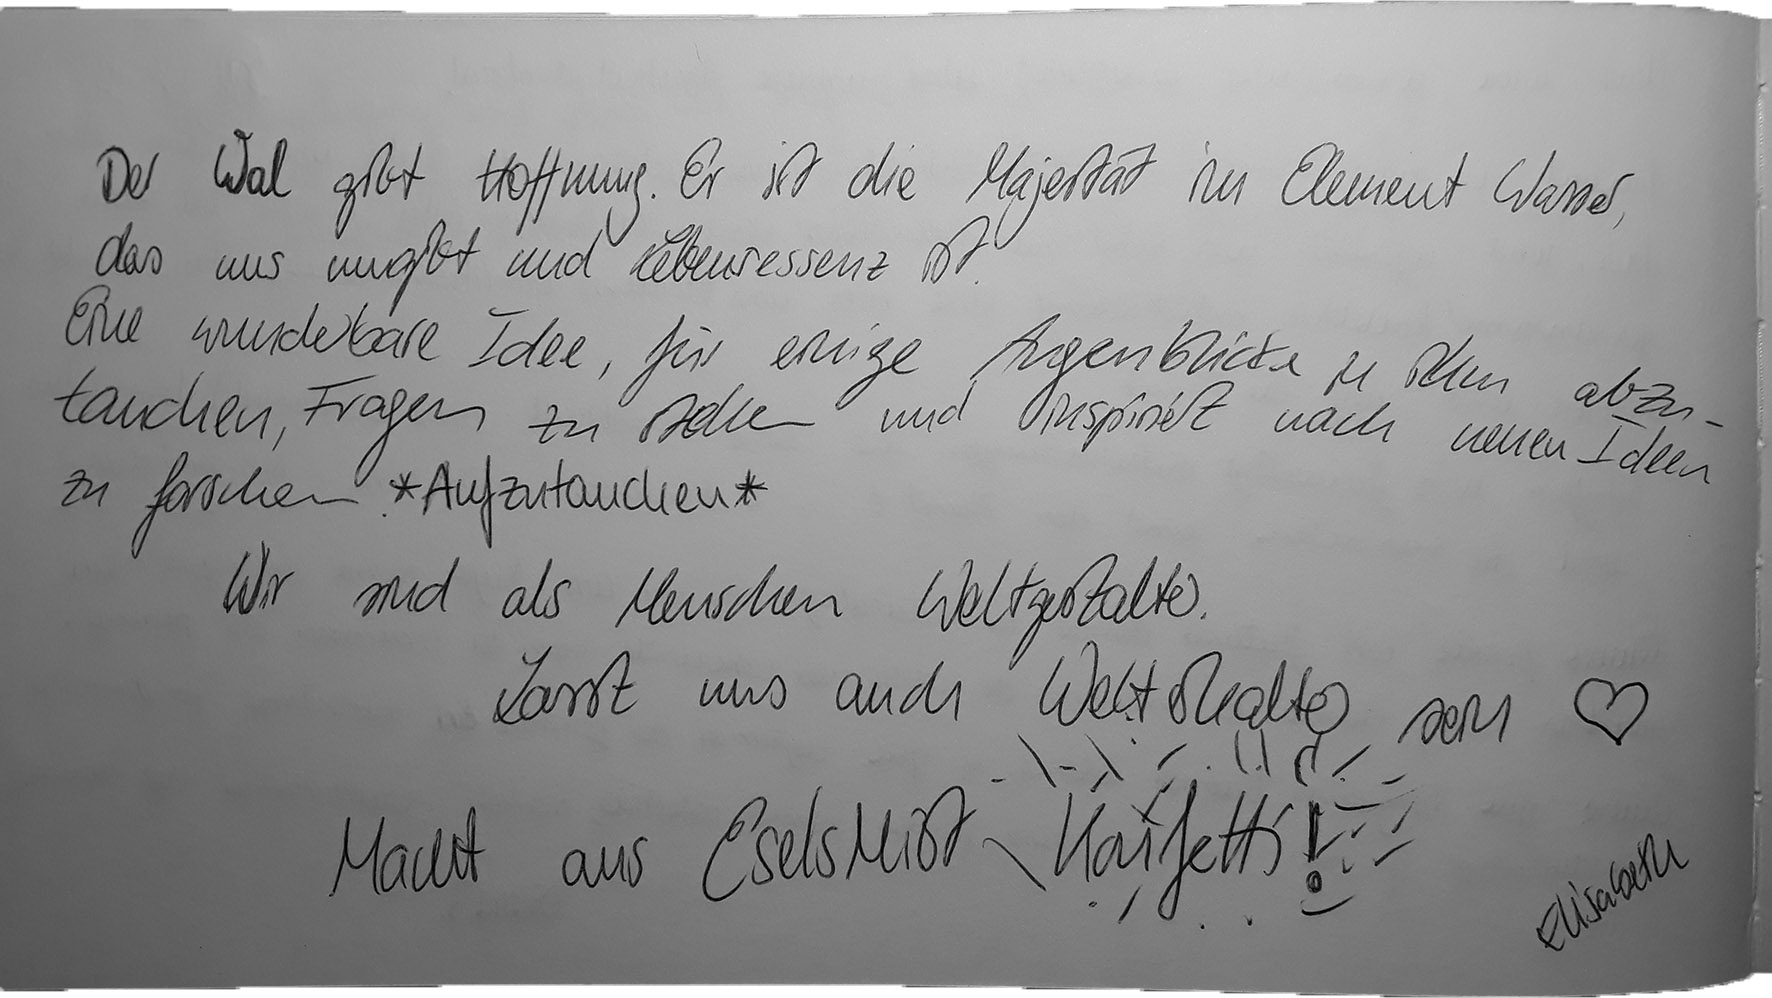 Der Wal gibt Hoffnung. Er ist die Majestät im Element Wasser,
das uns umgibt und Lebensessenz ist.
Eine wunderbare Idee, für einige Augenblicke zu ihm abzu-
tauchen, Fragen zu stellen und inspiriert nach neuen Ideen
zu forschen. *Aufzutauchen*
Wir sind als Menschen Weltgestalter.
Lasst uns auch Welterhalter sein ♡
Macht aus EselsMist Konfetti!
Elisabeth